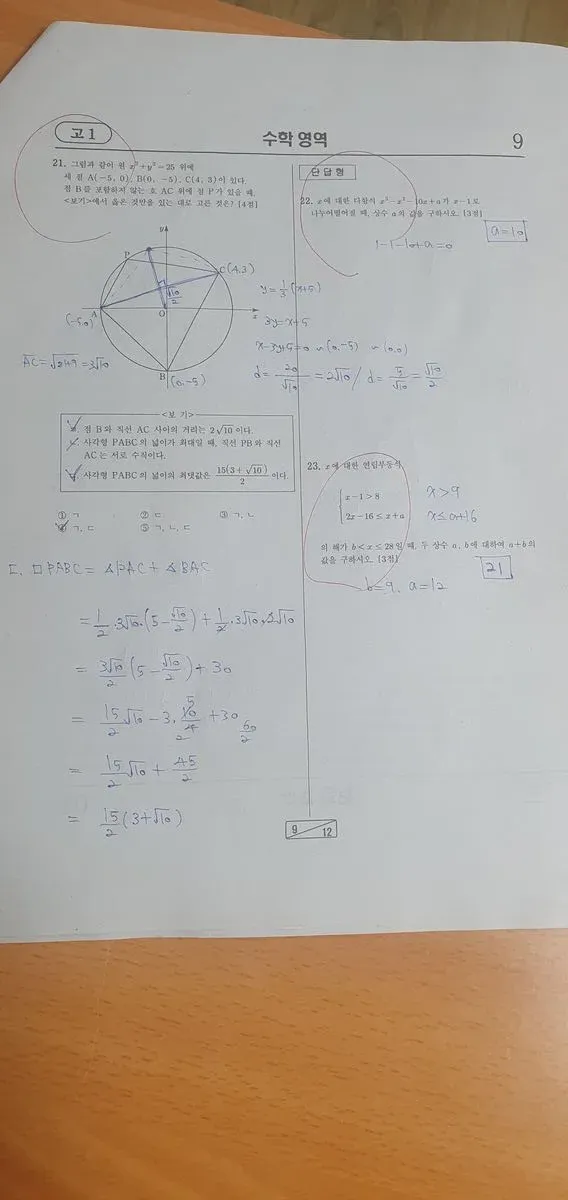 고1
수학 영역
9
21. 그림과 같이 원 x²+y²=25 위에
세 점 A(-5, 0), B(0, -5), C(4, 3)이 있다.
점 B를 포함하지 않는 호 AC 위에 점 P가 있을 때,
<보기>에서 옳은 것만을 있는 대로 고른 것은? [4점]
y
P
C(4,3)
√10/2
A
O
x
(-5,0)
B
(0,-5)
AC=√81+9=3√10
y=1/3(x+5)
3y=x+5
x-3y+5=0 ~ (0,-5) ~ (0,0)
d=20/√10=2√10 / d=5/√10=√10/2
<보 기>
ㄱ. 점 B와 직선 AC 사이의 거리는 2√10이다.
ㄴ. 사각형 PABC의 넓이가 최대일 때, 직선 PB와 직선
AC는 서로 수직이다.
ㄷ. 사각형 PABC의 넓이의 최댓값은 15(3+√10)/2 이다.
① ㄱ ② ㄷ ③ ㄱ, ㄴ
④ ㄱ, ㄷ ⑤ ㄱ, ㄴ, ㄷ
ㄷ. □PABC = △PAC + △BAC
= 1/2·3√10·(5-√10/2)+1/2·3√10·2√10
= 3√10/2(5-√10/2)+30
= 15/2√10-3·10/4+30
5
2
60/2
= 15/2√10+45/2
= 15/2(3+√10)
단답형
22. x에 대한 다항식 x³-x²-10x+a가 x-1로
나누어떨어질 때, 상수 a의 값을 구하시오. [3점]
a=10
1-1-10+a=0
23. x에 대한 연립부등식
x-1>8
x>9
2x-16≤x+a
x≤a+16
의 해가 b<x≤28일 때, 두 상수 a, b에 대하여 a+b의
값을 구하시오. [3점]
21
b=9, a=12
9
12